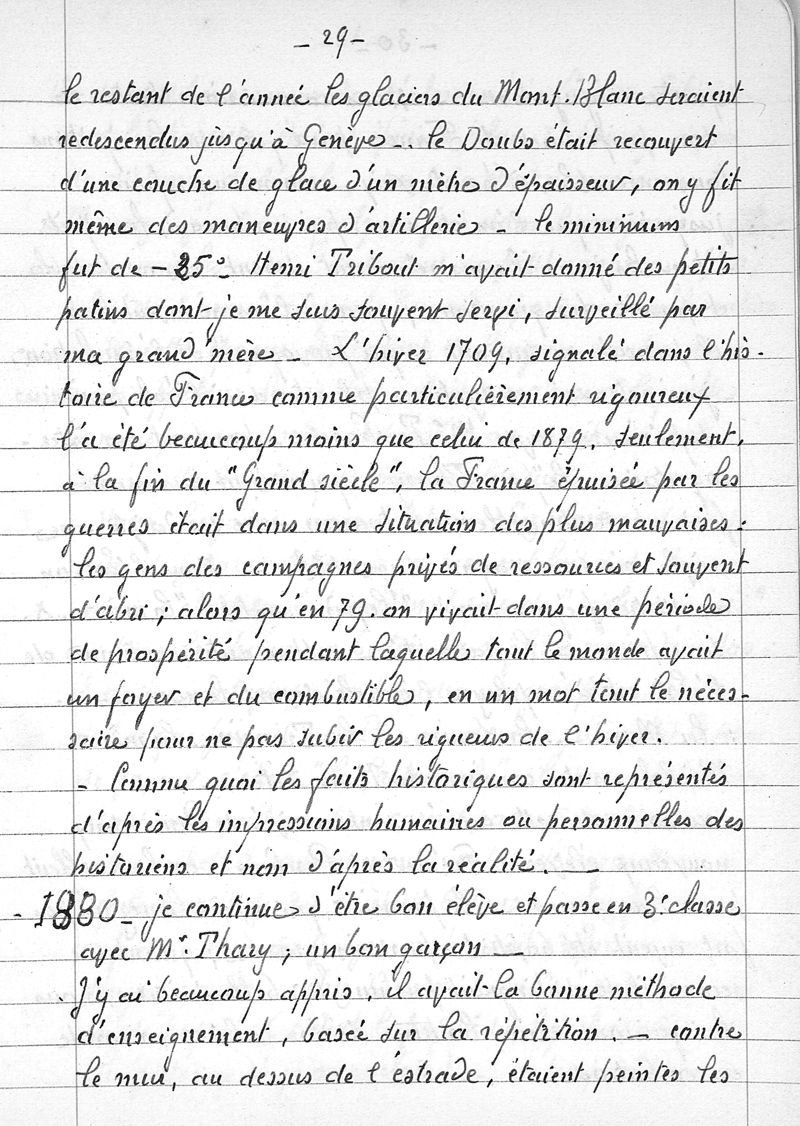 - 29 -
le restant de l'année les glaciers du Mont-Blanc seraient
redescendus jusqu'à Genève.. le Doubs était recouvert
d'une couche de glace d'un mètre d'épaisseur, on y fit
même des maneuvres d'artillerie - le minimum
fut de - 25° - Henri Tribout m'avait donné des petits
patins dont je me suis souvent servi, surveillé par
ma grand'mère - L'hiver 1709, signalé dans l'his-
toire de France comme particulièrement rigoureux
l'a été beaucoup moins que celui de 1879, seulement,
à la fin du "Grand siècle", la France épuisée par les
guerres était dans une situation des plus mauvaises :
les gens des campagnes privés de ressources et souvent
d'abri ; alors qu'en 79. on vivait dans une période
de prospérité pendant laquelle tout le monde avait
un foyer et du combustible, en un mot tout le néces-
saire pour ne pas subir les rigueurs de l'hiver.
- Comme quoi les faits historiques sont représentés
d'après les impressions humaines ou personnelles des
historiens et non d'après la réalité. —
- 1880 - je continue d'être bon élève et passe en 3e classe
avec Mr. Thary ; un bon garçon —
. J'y ai beaucoup appris, il avait la bonne méthode
d'enseignement, basée sur la répétition. - contre
le mur, au dessus de l'estrade, étaient peintes les